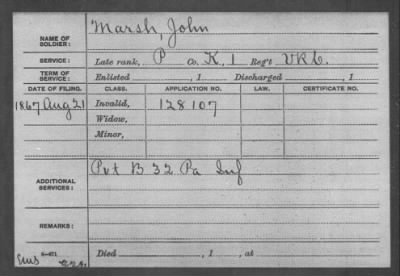 NAME OF SOLDIER: Marsh, John
SERVICE: Late rank, P Co. K, 1 Reg't VRC.
TERM OF SERVICE: Enlisted , 1 Discharged , 1
DATE OF FILING. CLASS. APPLICATION NO. LAW. CERTIFICATE NO.
1867 Aug 21 Invalid, 128107
Widow,
Minor,
ADDITIONAL SERVICES: Pvt B 32 Pa Inf
REMARKS:
Died , 1 , at